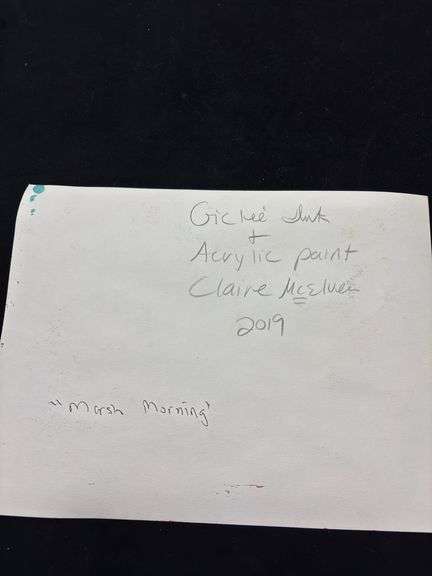 Gicleé Ink
+
Acrylic paint
Claire McElveen
2019
"Marsh Morning"